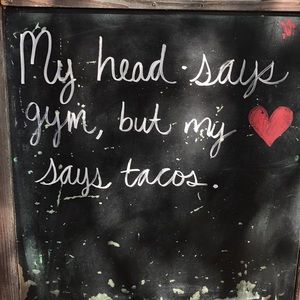 My head says
gym, but my ❤
says tacos.